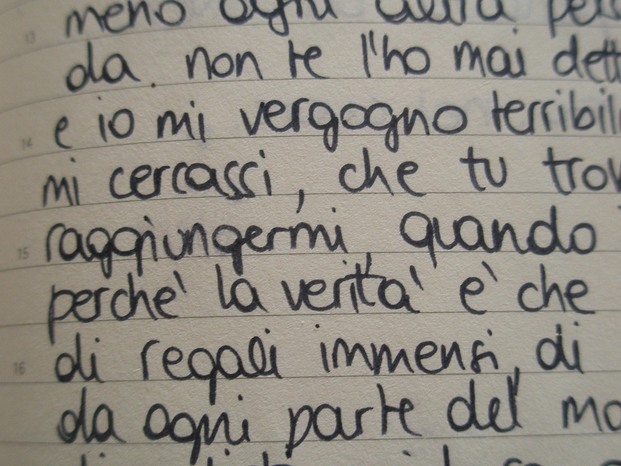 meno ogni
13
da. non te l'ho mai dett
14 e io mi vergogno terribil
mi cercassi, che tu trov
15 raggiungermi, quando
perche' la verita' e' che
16 di regali immensi, di
da ogni parte del mo